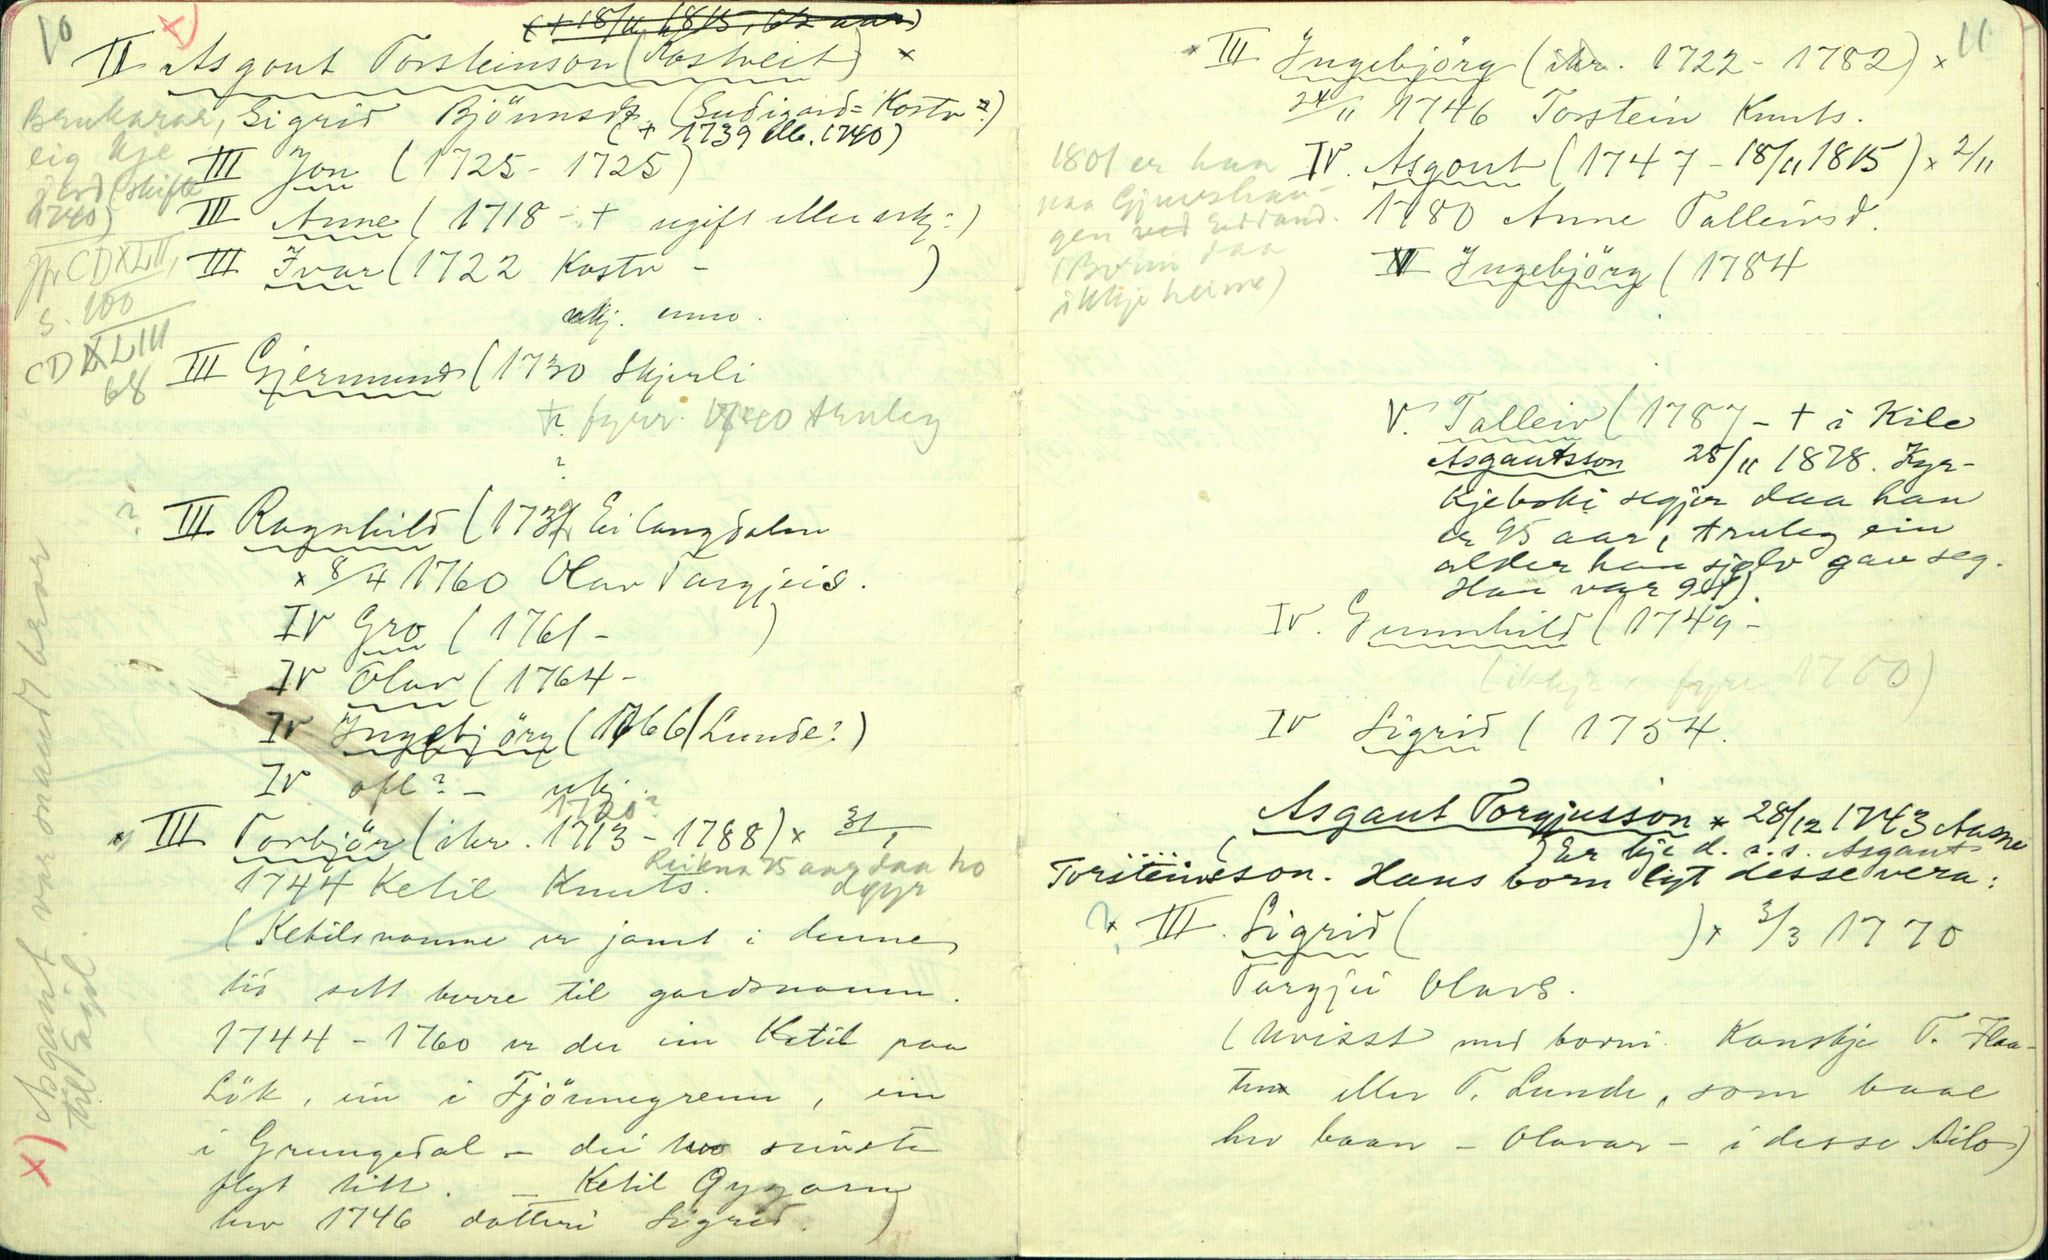 10
x)
(+ 18/11 1815, 62 aar)
II Asgout Torsteinson (Kostveit) ×
Brukarar, Sigrid Björnsd. (Sudigard = Kostv ?)
(+ 1739 ell. 1740)
eig kje
jord (skifte
1740)
III Jon (1725 - 1725)
III Anne (1718 - + ugift eller ukj.)
jfr CDXLII,
s. 100
III Ivar (1722 Kostv - )
ukj. enno.
CDXLIII
68
III Gjermund (1730 Skjerli
+? fyrr 1740 truleg
?
? III Ragnhild (1732 Ei Langdalen
× 8/4 1760 Olav Targjeis.
IV Gro (1761 - )
IV Olav (1764 -
IV Ingebjörg (1766 (Lunde?)
IV ofl? - ukj.
1720?
×) III Torbjör (ikr. 1713 - 1788) × 31/1
1744 Ketil Knuts. Rekna 75 aar daa ho
døyr
(Ketilsnamne er jamt i denne
tid sett berre til gardsnamn.
1744 - 1760 er der ein Ketil paa
Lök, ein i Tjönnegrenn, ein
i Grungedal - dei two seinste
flyt hitt. - Ketil Gyggarn
hev 1746 dotteri Sigrid. )
x) Asgaut var onamd bror
til Eagil.
11
× III Ingebjörg (ikr. 1722 - 1782) ×
24/11 1746 Torstein Knuts.
1801 er han
paa Gjuveshau-
gen ved Eidland.
(Borni daa
ikkje heime)
IV. Asgout (1747 - 18/11 1815) × 2/11
1780 Anne Talleivsd.
V Ingebjörg (1784
V. Talleiv (1787 - + i Kile
Asgautsson 28/11 1878. Kyr-
kjeboki segjer daa han
er 95 aar, truleg ein
alder han sjølv gav seg.
Han var 91).
IV. Gunnhild (1749 -
(ikkje × fyre 1760)
IV Sigrid (1754.
Asgaut Torgjusson × 28/12 1743 Aasne
( ..... ) Er kje d. s. s. Asgaut
Torsteinsson. Hans born lyt desse vera:
? × III. Sigrid ( ) × 3/3 1770
Targjei Olavs.
(Uvisst med borni. Kanskje T. Flaa-
ten eller T. Lunde, som baae
hev baan - Olavar - i desse bilo)